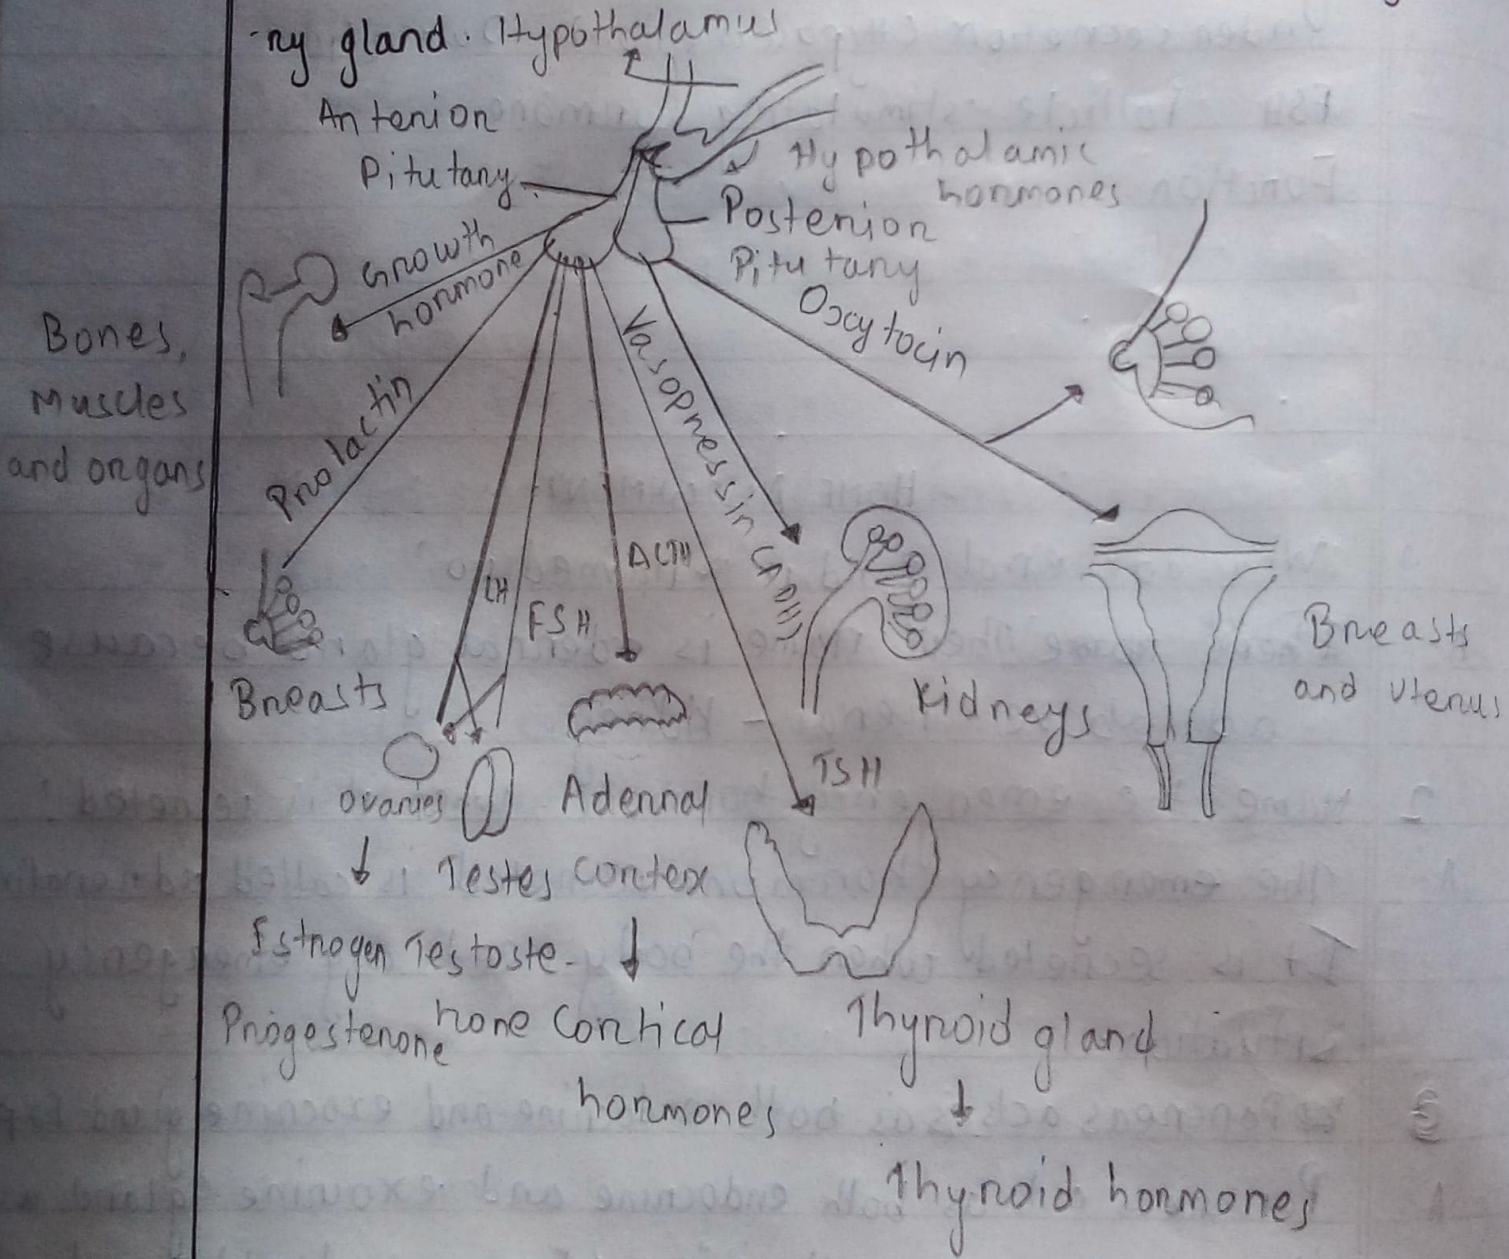 -ry gland. Hypothalamus
Anterior
Pitutary
Hypothalamic
hormones
Posterior
Pitutary
Growth
hormone
Oxytocin
Bones,
Muscles
and organs
Prolactin
Vasopressin (ADH)
LH
FSH
ACTH
Breasts
Kidneys
Breasts
and Uterus
TSH
ovaries
Adernal
Testes Cortex
Estrogen Testoste-
Progesterone rone Cortical
hormones
Thyroid gland
Thyroid hormones